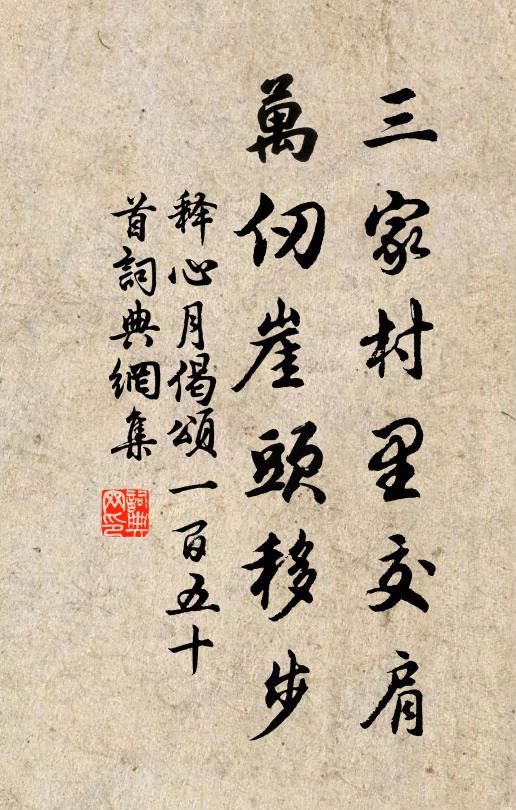 三家村里交肩
萬仞崖頭移步
释心月偈頌一百五十
首詞典網集
詞典网印